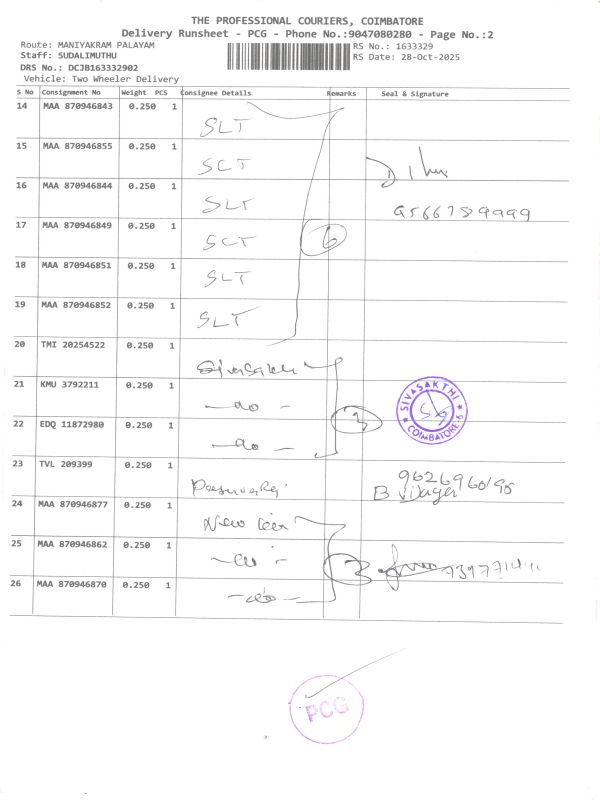 THE PROFESSIONAL COURIERS, COIMBATORE
Delivery Runsheet - PCG - Phone No.:9047080280 - Page No.:2
Route: MANIYAKRAM PALAYAM RS No.: 1633329
Staff: SUDALIMUTHU RS Date: 28-Oct-2025
DRS No.: DCJB163332902
Vehicle: Two Wheeler Delivery
S No Consignment No Weight PCS Consignee Details Remarks Seal & Signature
14 MAA 870946843 0.250 1 SLT
15 MAA 870946855 0.250 1 SCT
16 MAA 870946844 0.250 1 SLT 9566789999
17 MAA 870946849 0.250 1 SCT 6
18 MAA 870946851 0.250 1 SLT
19 MAA 870946852 0.250 1 SLT
20 TMI 20254522 0.250 1 Sivasakthi
21 KMU 3792211 0.250 1 -do- SIVASAKTHI
22 EDQ 11872980 0.250 1 -do- 3 COIMBATORE-6
23 TVL 209399 0.250 1 B
24 MAA 870946877 0.250 1 New
25 MAA 870946862 0.250 1 3
26 MAA 870946870 0.250 1
PCG